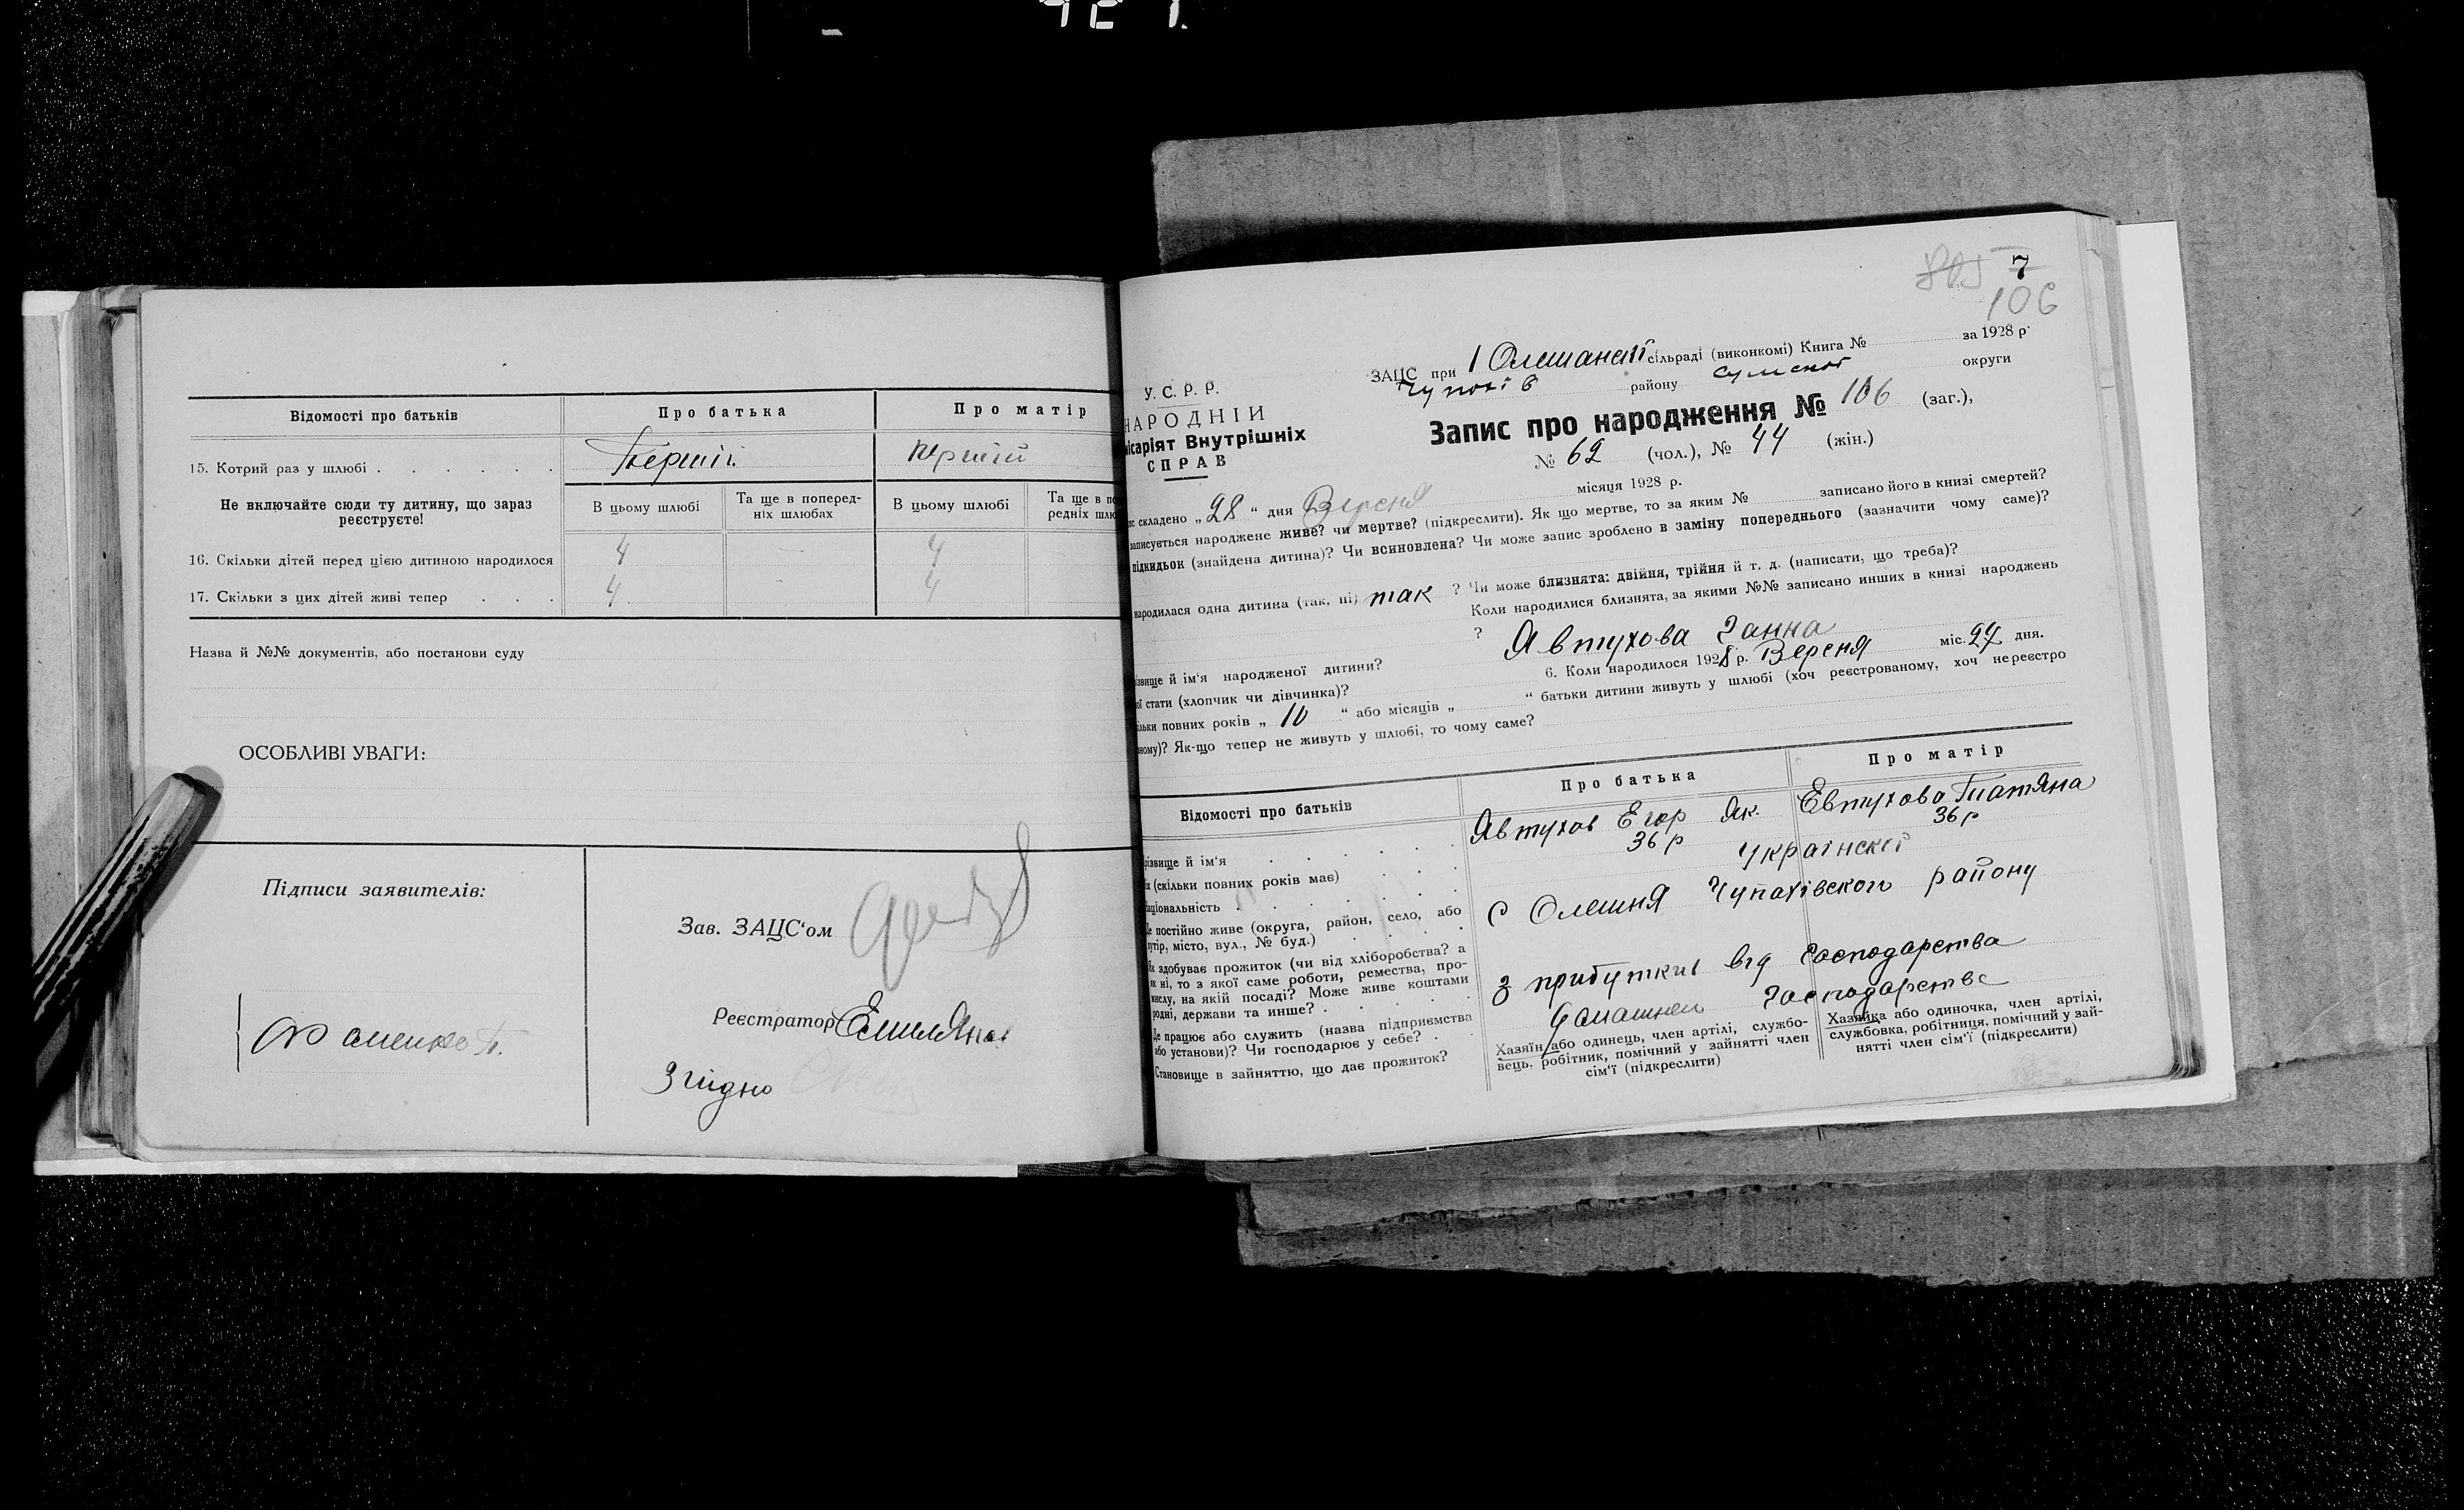 Відомості про батьків Про батька Про матір
15. Котрий раз у шлюбі . . . . . . Перший перший
Не включайте сюди ту дитину, що зараз реєструєте!
В цьому шлюбі Та ще в поперед-
ніх шлюбах
В цьому шлюбі Та ще в по
редніх шлю
16. Скільки дітей перед цією дитиною народилося 4 — 4
17. Скільки з цих дітей живі тепер . . . 4 - 4
Назва й №№ документів, або постанови суду
ОСОБЛИВІ УВАГИ:
Підписи заявителів:
Зав. ЗАЦС'ом
Реєстратор
Згідно
7
106
У.С.Р.Р.
НАРОДНІЙ
ісаріят Внутрішніх
СПРАВ
ЗАЦС при 1 Олешанскій сільраді (виконкомі) Книга № за 1928 р.
району Сумской округи
Запис про народження № 106 (заг.),
№ 62 (чол.), № 44 (жін.)
ис складено „28“ дня Вересня місяця 1928 р.
записується народжене живе? чи мертве? (підкреслити). Як що мертве, то за яким № записано його в книзі смертей?
підкидьок (знайдена дитина)? Чи всиновлена? Чи може запис зроблено в заміну попереднього (зазначити чому саме)?
народилася одна дитина (так, ні) так ? Чи може близнята: двійня, трійня й т. д. (написати, що треба)?
Коли народилися близнята, за якими №№ записано инших в книзі народжень
?
ізвище й ім'я народженої дитини? Явтухова Ганна
ої стати (хлопчик чи дівчинка)? 6. Коли народилося 1928 р. Вереня міс. 27 дня.
ільки повних років „ 10 “ або місяців „ “ батьки дитини живуть у шлюбі (хоч реєстрованому, хоч нереєстро
ному)? Як-що тепер не живуть у шлюбі, то чому саме?
Відомості про батьків Про батька Про матір
різвище й ім'я . . . . . . Явтухов Егор Як. Евтухова Татяна
ік (скільки повних років має) . . . 36 р 36 р
аціональність . . . . . . Украінскої
Де постійно живе (округа, район, село, або
утір, місто, вул., № буд.) . . . . С Олешня Чупахівского району
Як здобуває прожиток (чи від хліборобства? а
як ні, то з якої саме роботи, ремества, про-
мислу, на якій посаді? Може живе коштами
родні, держави та инше? . . . . . з прибутків від господарства
Де працює або служить (назва підприємства
або установи)? Чи господарює у себе? . . домашнем господарстве
Становище в зайняттю, що дає прожиток?
Хазяїн або одинець, член артілі, службо-
вець, робітник, помічний у зайнятті член
сім'ї (підкреслити)
Хазяйка або одиночка, член артілі,
службовка, робітниця, помічний у зай-
нятті член сім'ї (підкреслити)